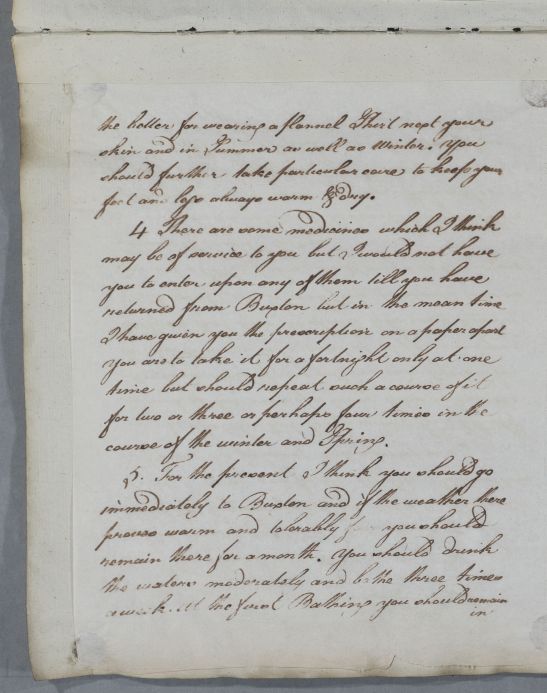 the better for wearing a flannel Shirt next your
skin and in Summer as well as Winter. You
should further take particular care to keep your
feet and legs always warm & dry.
4 There are some medicines which I think
may be of service to you but I would not have
you to enter upon any of them till you have
returned from Buxton but in the mean time
I have given you the prescription on a paper apart
you are to take it for a fortnight only at one
time but should repeat such a course of it
for two or three or perhaps four times in the
course of the winter and Spring.
5. For the present I think you should go
immediately to Buxton and if the weather there
proves warm and tolerably you should
remain there for a month. You should drink
the waters moderately and bathe three times
a week. At the first Bathing you should remain
in